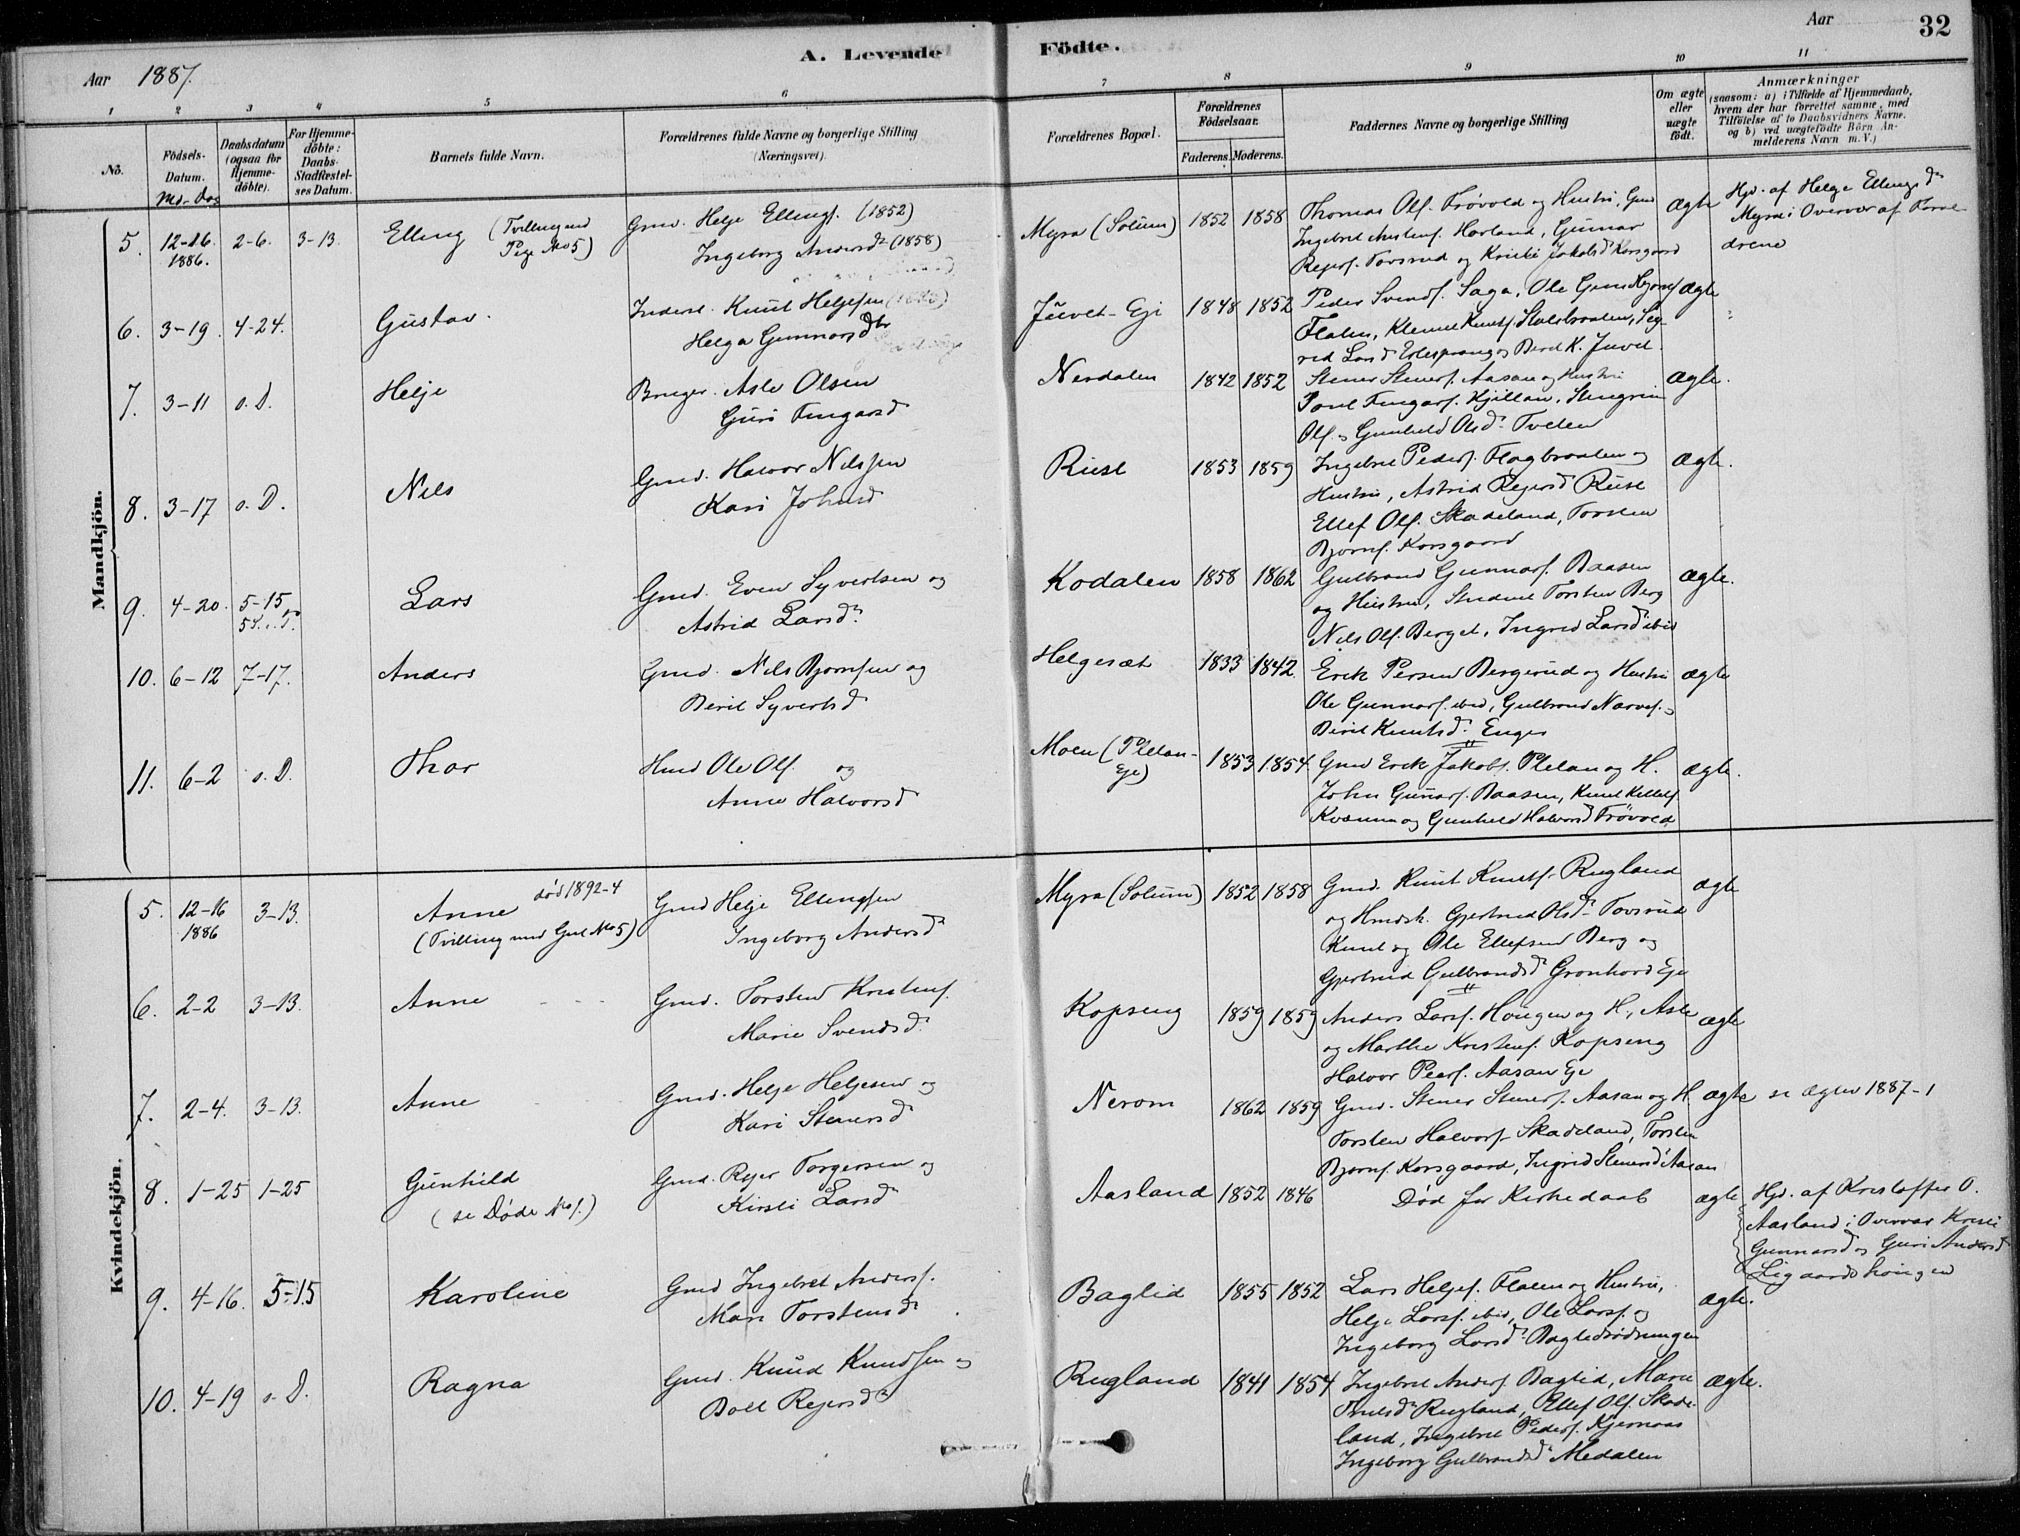 Aar 1887.
A. Levende Födte.
Aar
32
1 2 3 4 5 6 7 8 9 10 11
No.
Födsels-Datum.
Md. Dag
Daabsdatum (ogsaa for Hjemme-döbte).
For Hjemme-döbte: Daabs-Stadfæstel-ses Datum.
Barnets fulde Navn.
Forældrenes fulde Navne og borgerlige Stilling
(Næringsvei).
Forældrenes Bopæl.
Forældrenes Födselsaar.
Faderens. Moderens.
Faddernes Navne og borgerlige Stilling
Om ægte eller uægte födt.
Anmærkninger
(saasom: a) i Tilfælde af Hjemmedaab,
hvem der har forrettet samme, med
Tilföielse af to Daabsvidners Navne.
og b) ved uægtefödte Börn An-
melderens Navn m. V.)
Mandkjön.
5. 12-16 1886. 2-6. 3-13. Elling (Tvilling med Pige No 5) Gmd. Helje Ellings. (1852)
Ingeborg Andersd. (1858)
Myra (Solum) 1852 1858 Thomas Ols. Frövold og Hustru, Gmd
Ingebret Austens. Horland, Gunnar
Rejers. Tovsrud og Kristi Jakobsd Korsgaard
ægte Hjd. af Helge Ellingsd.
Myra i Overvær af Foræl-
drene
6. 3-19. 4-24. Gustav. Inderst. Knut Heljesen
Helga Gunnarsdtr
Juvet-Eje 1848 1852 Peder Svends. Saga, Ole
Flaten, Klemet Knuts. Stolsbraaten, Sig-
rid Larsd og Berit K. Juvet.
ægte
7. 3-11 s. D. Helje Bruger. Asle Olsen
Guri Fingarsd
Nerdalen 1842 1852 Stener Steners. Aasan og Hustru
Poul Fingars. Kjillan, Stengrim
Ols. og Gunhild Olsd. Tveten
ægte.
8. 3-17 s. D. Nils Gmd. Halvor Nilssen
Kari Johnsd
Rust 1853 1859 Ingebret Peders. Flagbraaten og
Hustru, Astrid Rejersd Rust
Ellef Ols. Skadeland, Torsten
Bjorns. Korsgaard
ægte.
9. 4-20. 5-15 5 S. e. P. Lars Gmd. Even Syvertsen og
Astrid Larsd.
Kodalen 1858 1862 Gulbrand Gunnars. Baasen
og Hustru, Student Torsten Berg
Nils Ols. Berget, Ingrid Larsd ibid
ægte.
10. 6-12 7-17. Anders Gmd. Nils Bjornsen og
Berit Syvertsd
Helgeset 1833 1842 Erik Persen Bergerud og Hustru
Ole Gunnars. ibid, Gulbrand Narves. og
Berit Knutsd. Enger
ægte
11. 6-2 s. D. Thor Hmd Ole Ols. og
Anne Halvorsd
Moen (Pletan-Eje) 1853 1854 Gmd Erik Jakobs. Pletan og H.
John Gunars. Baasen, Knut Kittels.
Kvamme og Gunhild Halvorsd Frövold
ægte.
Kvindekjön.
5. 12-16 1886 3-13. Anne død 1892-4
(Tvilling med Gut No 5) Gmd Helje Ellingsen
Ingeborg Andersd
Myra (Solum) 1852 1858 Gmd. Knut Knuts. Rugland
og Hmdsk. Gjertrud Olsd. Tovsrud
Knut og Ole Ellefsen Berg og
Gjertrud Gulbrandsd. Gronhord Eje
ægte
6. 2-2 3-13. Anne Gmd. Torsten Kristens.
Marie Svendsd.
Kopseng 1859 1859 Anders Lars. Hougen og H., Asle
og Marthe Kristens. Kopseng
Halvor Peers. Aasan Eje
ægte
7. 2-4. 3-13. Anne Gmd. Helje Heljesen og
Kari Stenersd
Nerom 1862 1859 Gmd. Stener Steners. Aasan og H.
Torsten Halvors. Skadeland, Torsten
Bjorns. Korsgaard, Ingrid Stenersd Aasan
ægte se ægtev 1887-1
8. 1-25 1-25 Gunhild
(se Døde No 1.) Gmd. Rejer Torgersen og
Kirsti Larsd
Aasland 1852 1846 Død før Kirkedaab
ægte Hjd. af Kristoffer O.
Aasland i Overvær Kristi
Gunnarsd og Guri Andersd
Ligaardshougen
9. 4-16. 5-15 Karoline Gmd Ingebret Anders.
Mari Torstensd.
Baglid 1855 1852 Lars Heljes. Flaten og Hustru,
Helje Lars. ibid, Ole Lars. og
Ingeborg Larsd. Baglidrødningen
ægte.
10. 4-19 s. D. Ragna Gmd. Knud Knudsen og
Boel Rejersd
Rugland 1841 1854 Ingebret Anders. Baglid, Marie
Trulsd Rugland, Ellef Ols. Skade-
land, Ingebret Peders. Kjernaas
Ingeborg Gulbrandsd. Medalen
ægte.